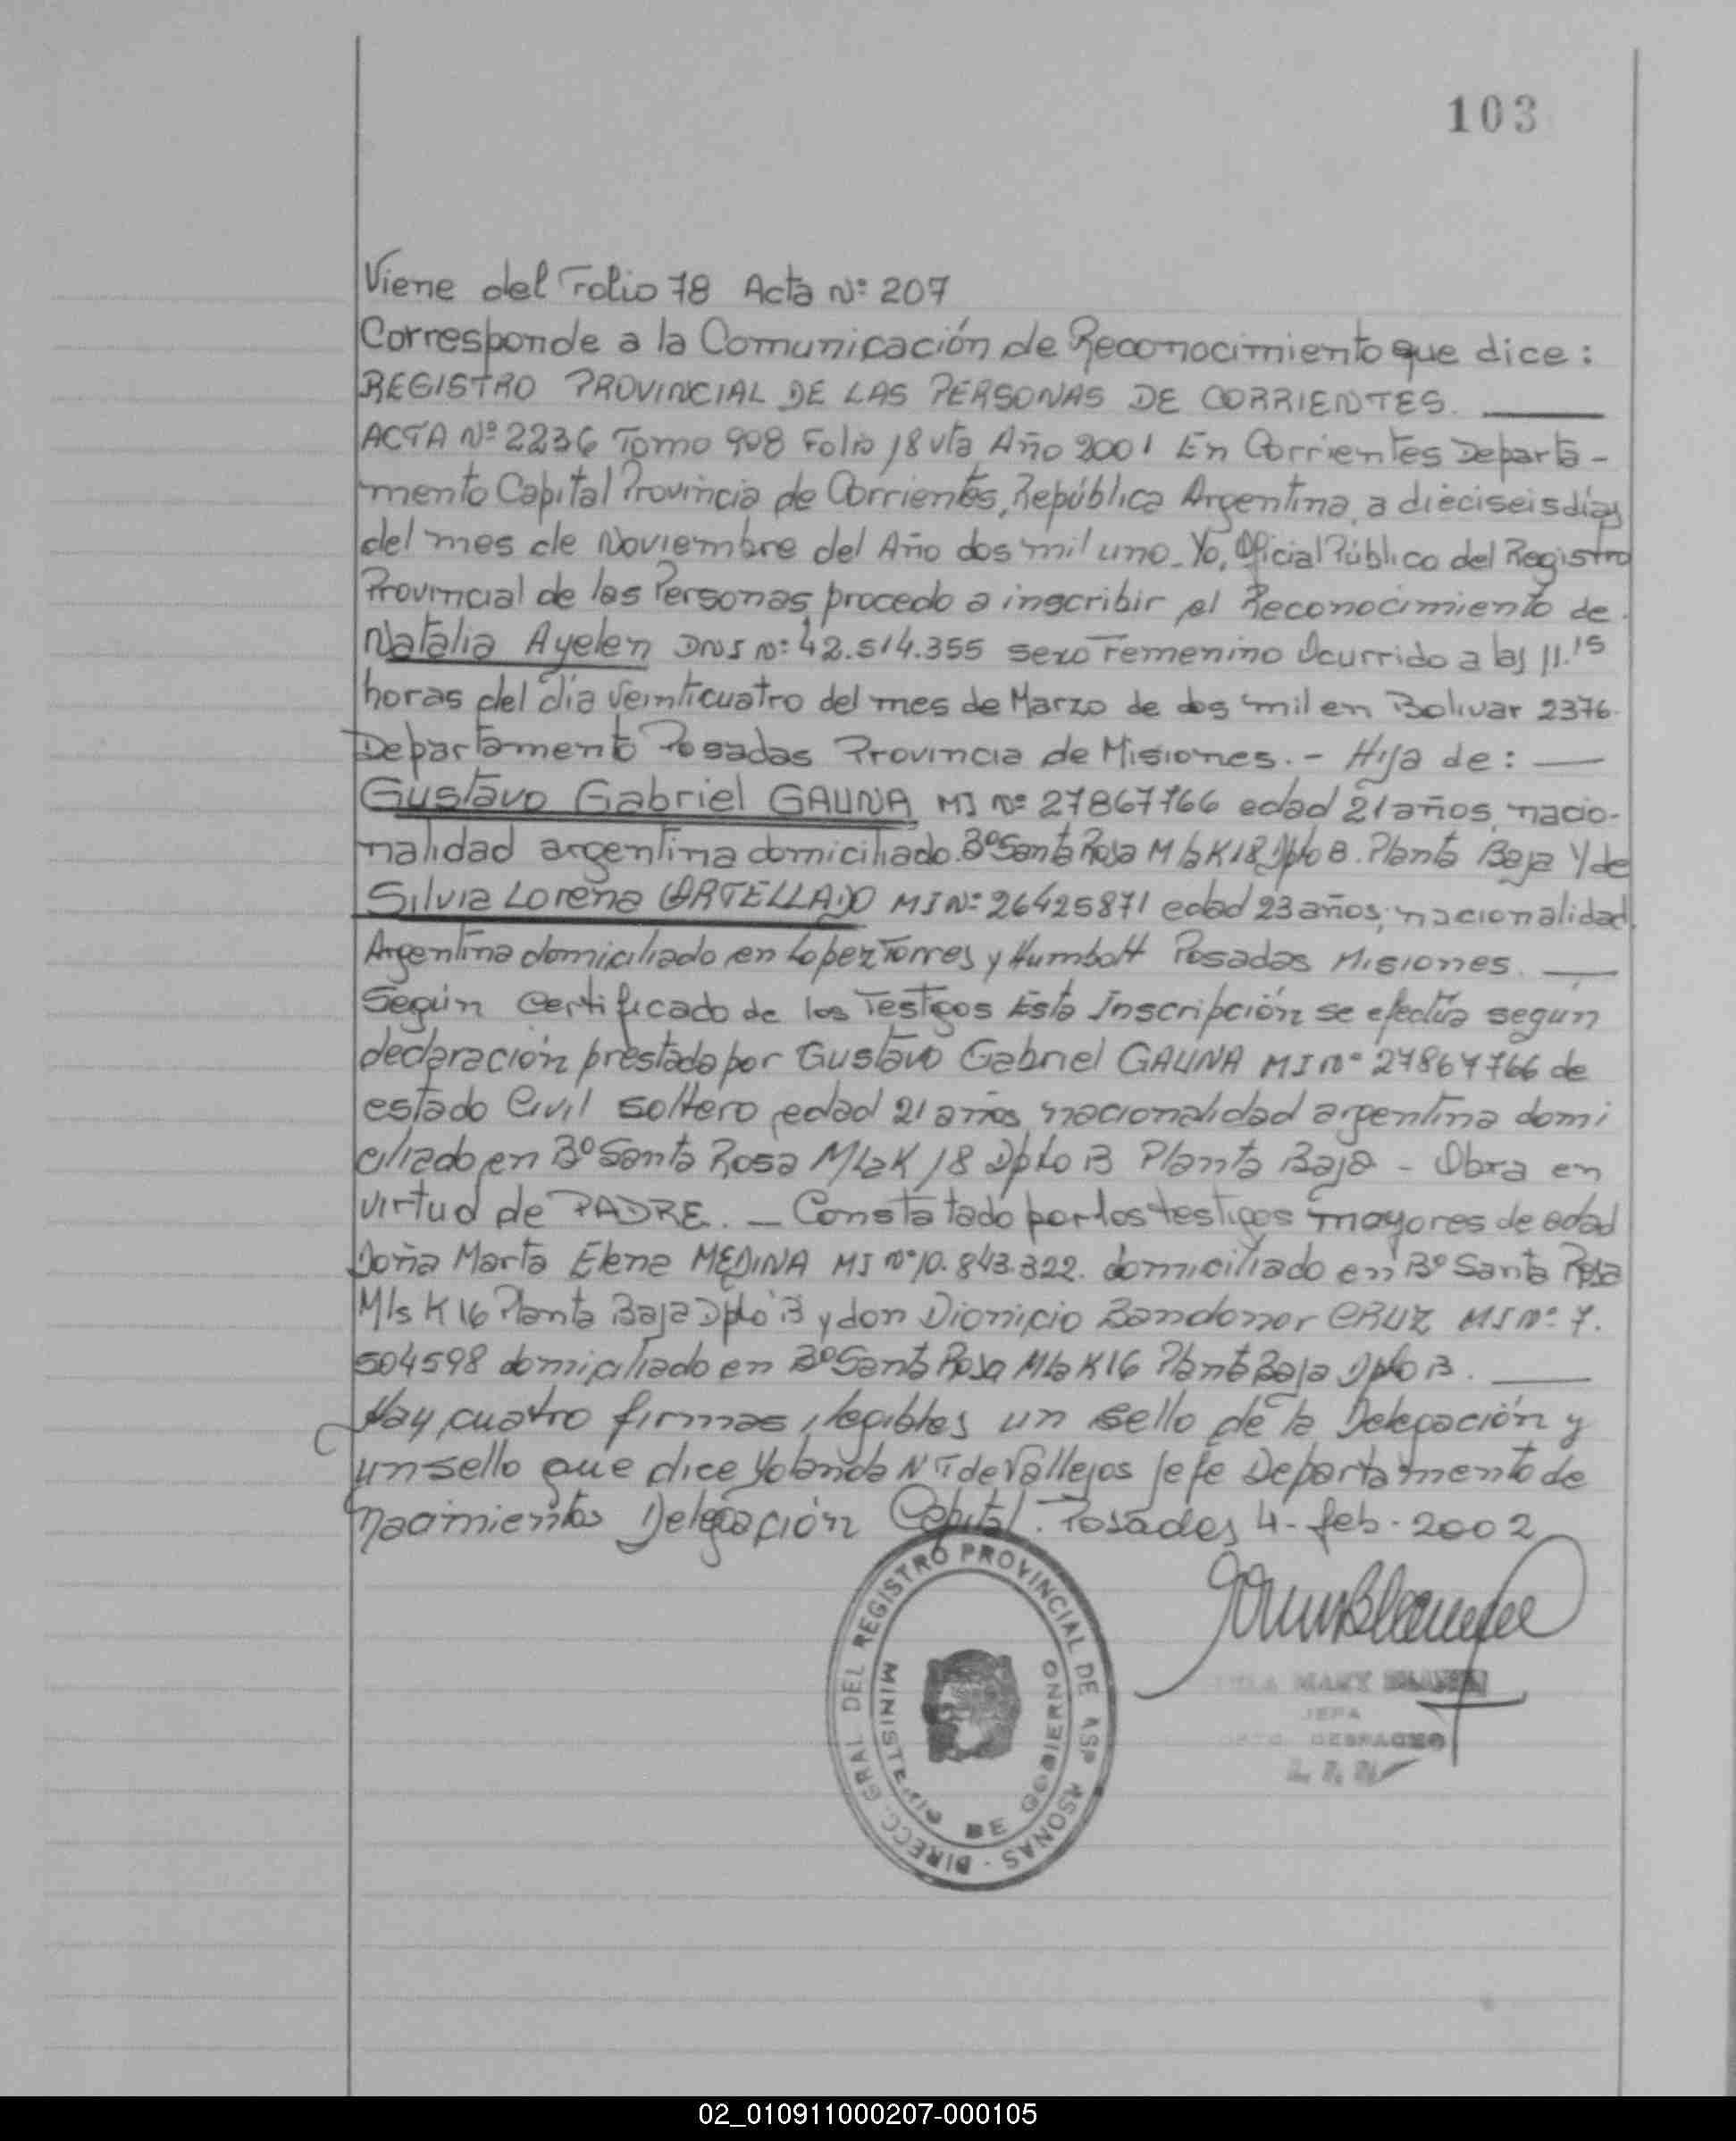 103
Viene del Folio 78 Acta Nº 207
Corresponde a la Comunicación de Reconocimiento que dice:
REGISTRO PROVINCIAL DE LAS PERSONAS DE CORRIENTES.
ACTA Nº 2236 Tomo 908 Folio 18 vta Año 2001 En Corrientes Departa-
mento Capital Provincia de Corrientes, República Argentina, a dieciseis días
del mes de Noviembre del Año dos mil uno. Yo, Oficial Público del Registro
Provincial de las Personas procedo a inscribir el Reconocimiento de
Natalia Ayelen DNI Nº 42.514.355 sexo Femenino Ocurrido a las 11.15
horas del día Veinticuatro del mes de Marzo de dos mil en Bolivar 2376.
Departamento Posadas Provincia de Misiones. - Hija de:
Gustavo Gabriel GAUNA MI Nº 27867766 edad 21 años, nacio-
nalidad argentina domiciliado Bº Santa Rosa M la K 18 Dpto B. Planta Baja Y de
Silvia Lorena MI Nº 26425871 edad 23 años, nacionalidad
Argentina domiciliado en Lopez Torres y Humbolt Posadas Misiones.
Según Certificado de los Testigos Esta Inscripción se efectúa según
declaración prestada por Gustavo Gabriel GAUNA MI Nº 27867766 de
estado Civil soltero edad 21 años nacionalidad argentina domi
ciliado en Bº Santa Rosa M la K 18 Dpto B Planta Baja - Obra en
virtud de PADRE. - Constatado por los testigos mayores de edad
Doña Marta Elena MEDINA MI Nº 10.843.322. domiciliado en Bº Santa Rosa
M la K 16 Planta Baja Dpto B y don Dionicio CRUZ MI Nº 7.
504598 domiciliado en Bº Santa Rosa M la K 16 Planta Baja Dpto B.
Hay cuatro firmas ilegibles un sello de la Delegación y
un sello que dice Yolanda N T de Vallejos Jefe Departamento de
Nacimientos Delegación Capital. Posadas 4 - feb - 2002
DIRECC. GRAL DEL REGISTRO PROVINCIAL DE
MINISTERIO DE GOBIERNO
MARY
JEFA
DESPACHO
02_010911000207-000105